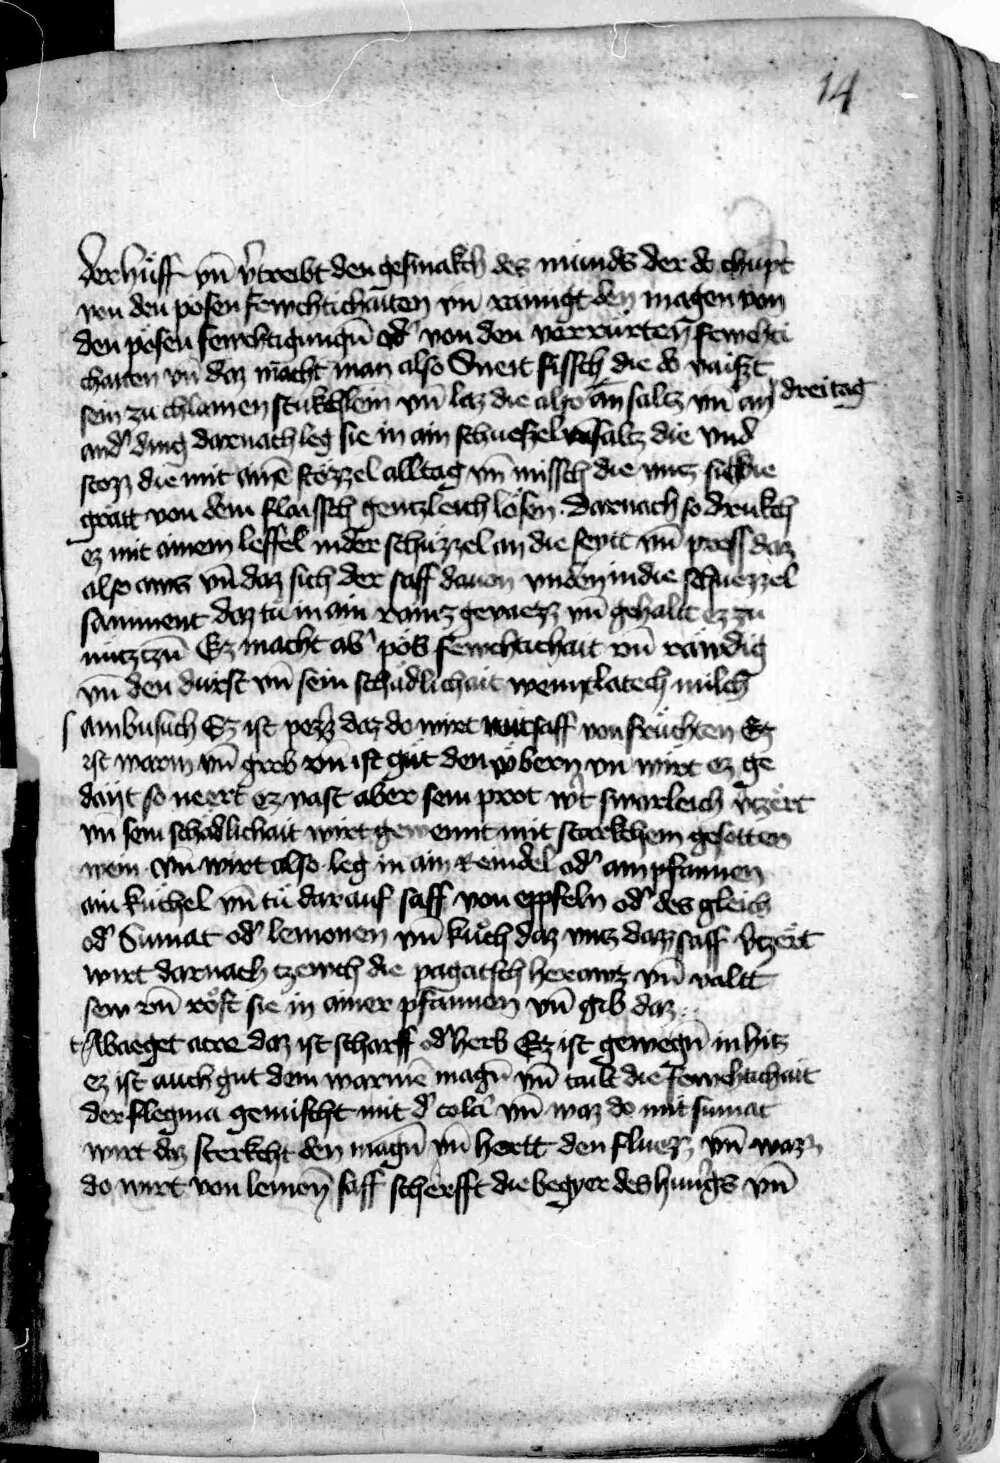 14
der huͤff vn̄ v̓treibt den gesmakch des munds der do chupt
von den posen fewchtichaiten vn̄ rainigt den magen von
den posen fewchtigungn̄ od̓ von den verrurten fewchti
chaiten vn̄ daz macht man also Sneit fissch die do vaiszt
sein zu chlainen stukchlein vn̄ laz die also an saltz vn̄ an dreitag
and̓ ding darnach leg sie in ain schuessel vn̄ saltz die vnd̓
stozz die mit aine͞ stozzel alltag vn̄ missch die vntz sich die
gratt von dem flaissch gentzleich losen. darnach so drukch
ez mit ainem leffel in der schuzzel an die seytt vn̄ press daz
also aws vn̄ daz sich der saff dauon vnden in die schuezzel
samment daz tu in ain rainz geuaezz vn̄ gehalt ez zu
nutzzn̄ Ez macht ab̓ pos fewchtichait vn̄ rawdig
vn̄ den durst vn̄ sein schadlichait wempt latech milch
s ambusuch Ez ist pezz daz do wirt mit saff von fruchten Ez
ist warm vn̄ grob vn̄ ist gut den wibern vn̄ wirt ez ge
daýt so neert ez vast aber sein prot wirt swarleich v̓tzert
vn̄ sein schadlichait wirt gewennt mit starkchem gesotten
wein vn̄ wirt also leg in ain reindel od̓ ain pfannen
ain kuchel vn̄ tu darauf saff von eppfeln od̓ des gleich
od̓ Sumat od̓ lemonen vn̄ kuch daz vntz daz saff v̓tzert
wirt darnach tzewch die pagatsch herawz vn̄ valtt
sew vn̄ rost sie in ainer pfannen vn̄ gib daz
t Abaeget acre daz ist scharff od̓ herb Ez ist gewegn̄ in hitz
ez ist auch gut dem warme͞ magn̄ vn̄ tailt die fewchtichait
der flegma gemischt mit d̓ cola̓ vn̄ waz do mit sumat
wirt daz sterkcht den magn̄ vn̄ hertt den fluezz vn̄ waz
do wirt von lemon̄ saff scherfft die begyer des hung̓s vn̄